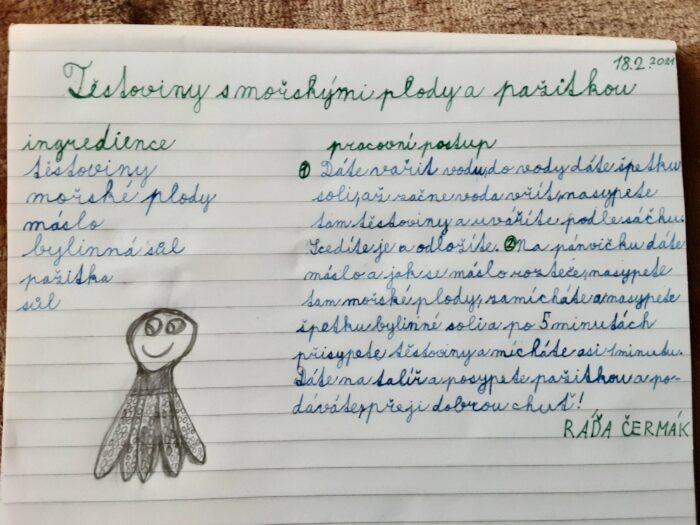 18.2.2021
Těstoviny s mořskými plody a pažitkou
ingredience
těstoviny
mořské plody
máslo
bylinná sůl
pažitka
sůl
pracovní postup
1 Dáte vařit vodu, do vody dáte špetku
soli, až začne voda vřít, nasypete
tam těstoviny a uvaříte podle sáčku.
Scedíte je a odložíte. 2 Na pánvičku dáte
máslo a jak se máslo rozteče, nasypete
tam mořské plody, zamícháte a nasypete
špetku bylinné soli a po 5 minutách
přisypete těstoviny a mícháte asi 1 minutu.
Dáte na talíř a posypete pažitkou a po-
dáváte, přeji dobrou chuť!
RÁĎA ČERMÁK